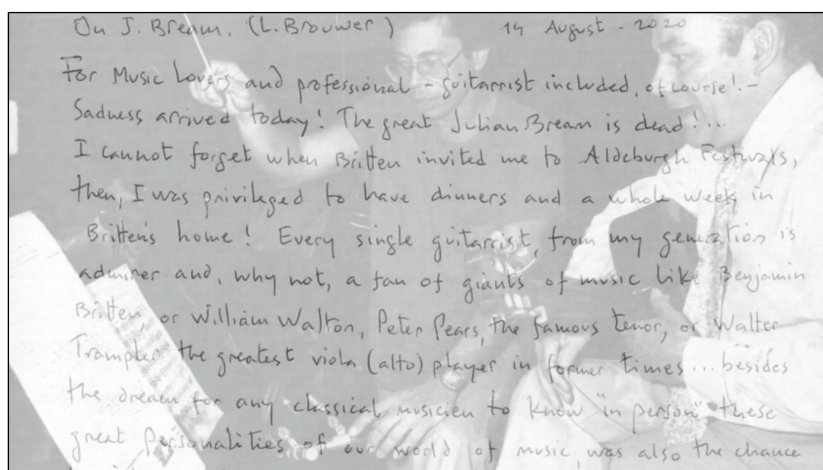 On J. Bream. (L. Brouwer) 14 August - 2020
For Music Lovers and professional - guitarrist included, of course! -
Sadness arrived today! The great Julian Bream is dead!...
I cannot forget when Britten invited me to Aldeburgh Festivals,
then, I was privileged to have dinners and a whole week in
Britten's home! Every single guitarrist, from my generation is
admirer and, why not, a fan of giants of music like Benjamin
Britten, or William Walton, Peter Pears, the famous tenor, or Walter
Trampler the greatest viola (alto) player in former times... besides
the dream for any classical musicien to know "in person" these
great Personalities of our world of music was also the chance